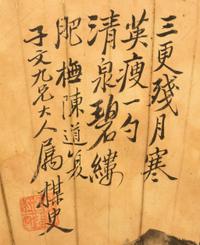 三更殘月寒
英瘦一勺
清泉碧縷
肥 陳道復
子文九兄大人
屬 棋史